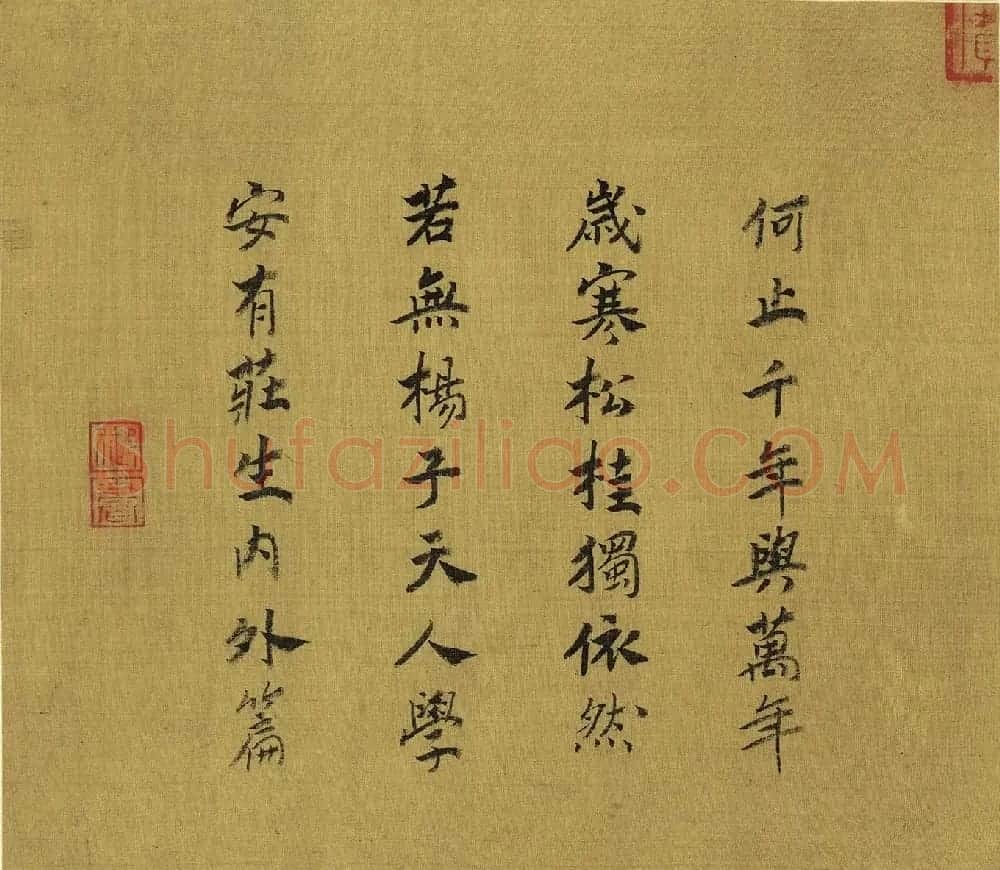 何止千年與萬年
歲寒松桂獨依然
若無楊子天人學
安有莊生內外篇
shufaziliao.COM